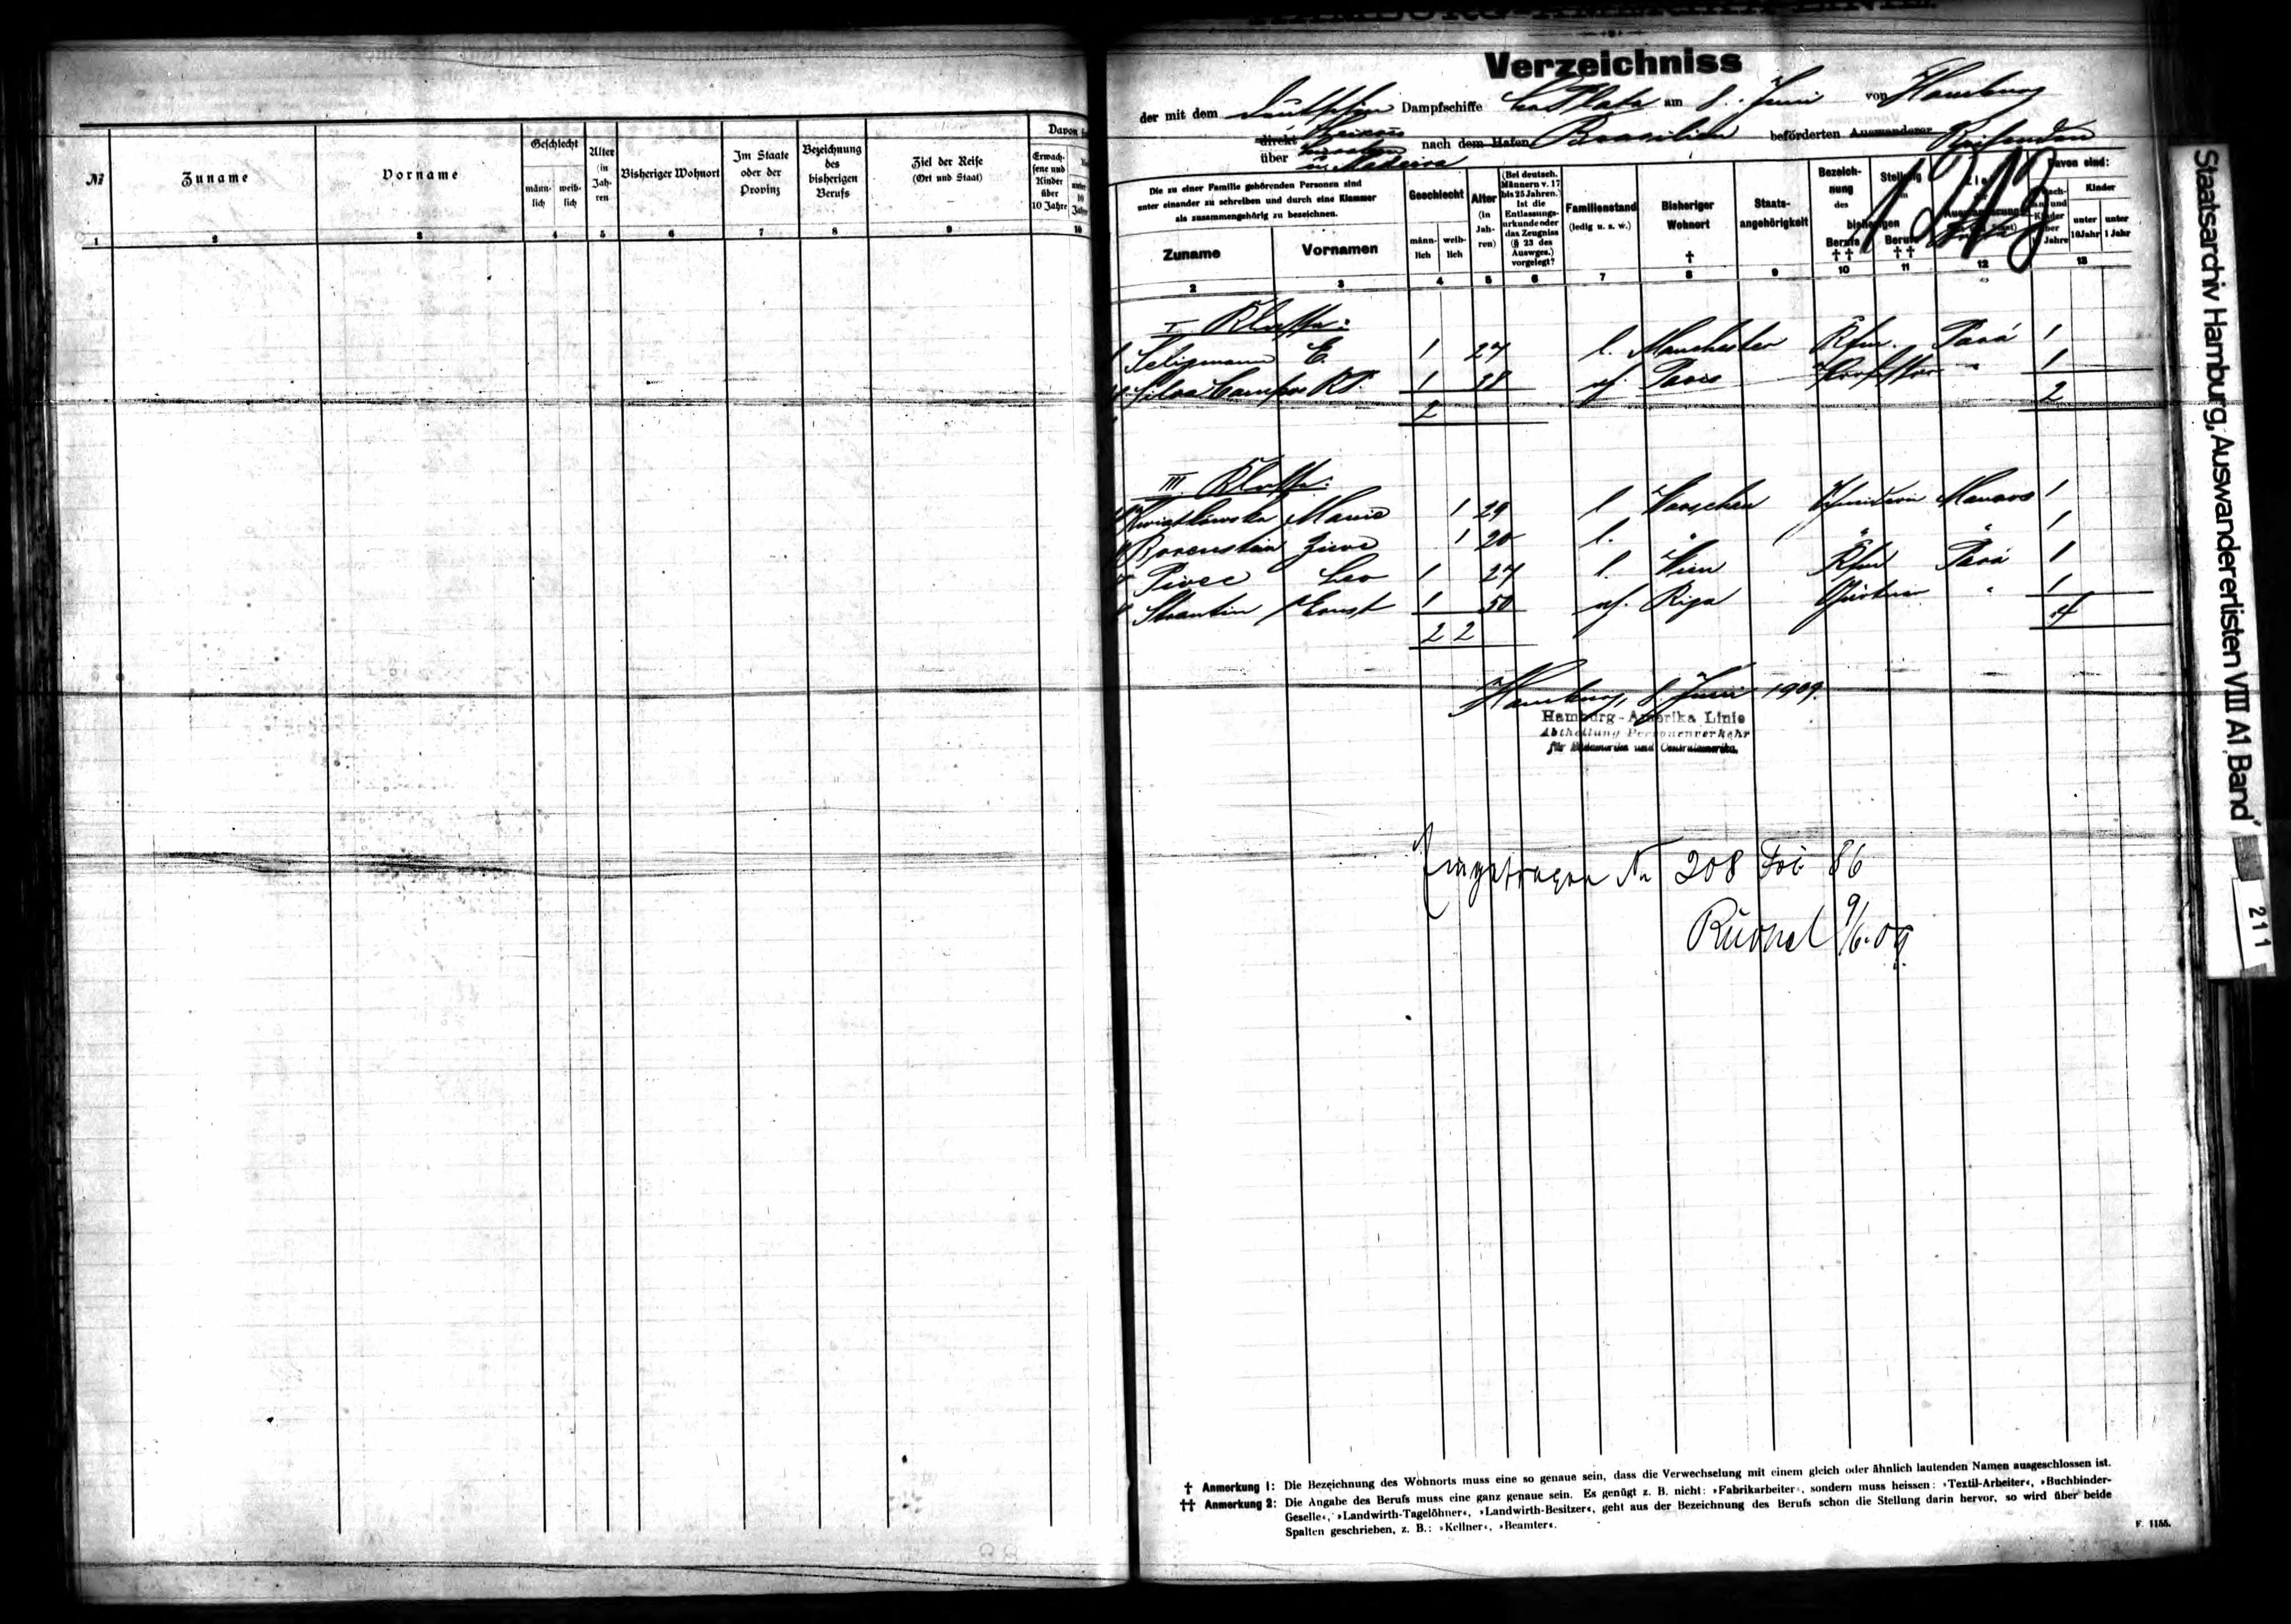 №
Zuname
Vorname
Geschlecht
männ-
lich
weib-
lich
Alter
(in
Jah-
ren
Bisheriger Wohnort
Im Staate
oder der
Provinz
Bezeichnung
des
bisherigen
Berufs
Ziel der Reise
(Ort und Staat)
Davon
Erwach-
sene und
Kinder
über
10 Jahre
1 2 3 4 5 6 7 8 9 10
Verzeichniss
der mit dem Deutschen Dampfschiffe La Plata am 8. Juni von Hamburg
direkt
über
u. Madeira
nach dem Hafen Brasilien beförderten Auswanderer Reisenden
Die zu einer Familie gehörenden Personen sind
unter einander zu schreiben und durch eine Klammer
als zusammengehörig zu bezeichnen.
Zuname
Vornamen
Geschlecht
männ-
lich
weib-
lich
Alter
(in
Jah-
ren)
(Bei deutsch.
Männern v. 17
bis 25 Jahren.)
Ist die
Entlassungs-
urkunde oder
das Zeugniss
(§ 23 des
Auswges.)
vorgelegt?
Familienstand
(ledig u. s. w.)
Bisheriger
Wohnort
†
Staats-
angehörigkeit
Bezeich-
nung
des
Stellung
bisherigen
Berufs
††
Berufs
††
Davon sind:
Kinder
unter
10 Jahr
unter
1 Jahr
2 3 4 5 6 7 8 9 10 11 12 13
I Klasse:
Seligmann E. 1 27 l. Manchester Kfm. Pará 1
Silva Campos R.P. 1 38 vh. Paris Professor " 1
2 2
III Klasse:
Kwiatkowska Marie 1 29 l Warschau Manaos 1
Borenstein 1 20 l. " " " 1
Pivec Leo 1 27 l. Wien Kfm Pará 1
Strantin Ernst 1 50 vh. Riga Gärtner " 1
2 2 4
Hamburg, 8 Juni 1909.
Hamburg-Amerika Linie
Abtheilung Personenverkehr
für Südamerika und Centralamerika.
Eingetragen No 208 Fol. 86
9/6.09.
† Anmerkung 1: Die Bezeichnung des Wohnorts muss eine so genaue sein, dass die Verwechselung mit einem gleich oder ähnlich lautenden Namen ausgeschlossen ist.
†† Anmerkung 2: Die Angabe des Berufs muss eine ganz genaue sein. Es genügt z. B. nicht: »Fabrikarbeiter«, sondern muss heissen: »Textil-Arbeiter«, »Buchbinder-
Geselle«, »Landwirth-Tagelöhner«, »Landwirth-Besitzer«, geht aus der Bezeichnung des Berufs schon die Stellung darin hervor, so wird über beide
Spalten geschrieben, z. B.: »Kellner«, »Beamter«.
F. 1155.
Staatsarchiv Hamburg, Auswandererlisten VIII A1 Band
211